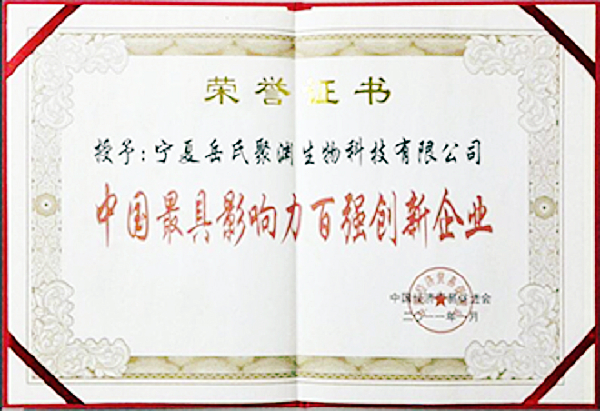 荣誉证书
授予：宁夏岳氏聚渊生物科技有限公司
中国最具影响力百强创新企业
中国经济贸易促进会
二〇一一年一月